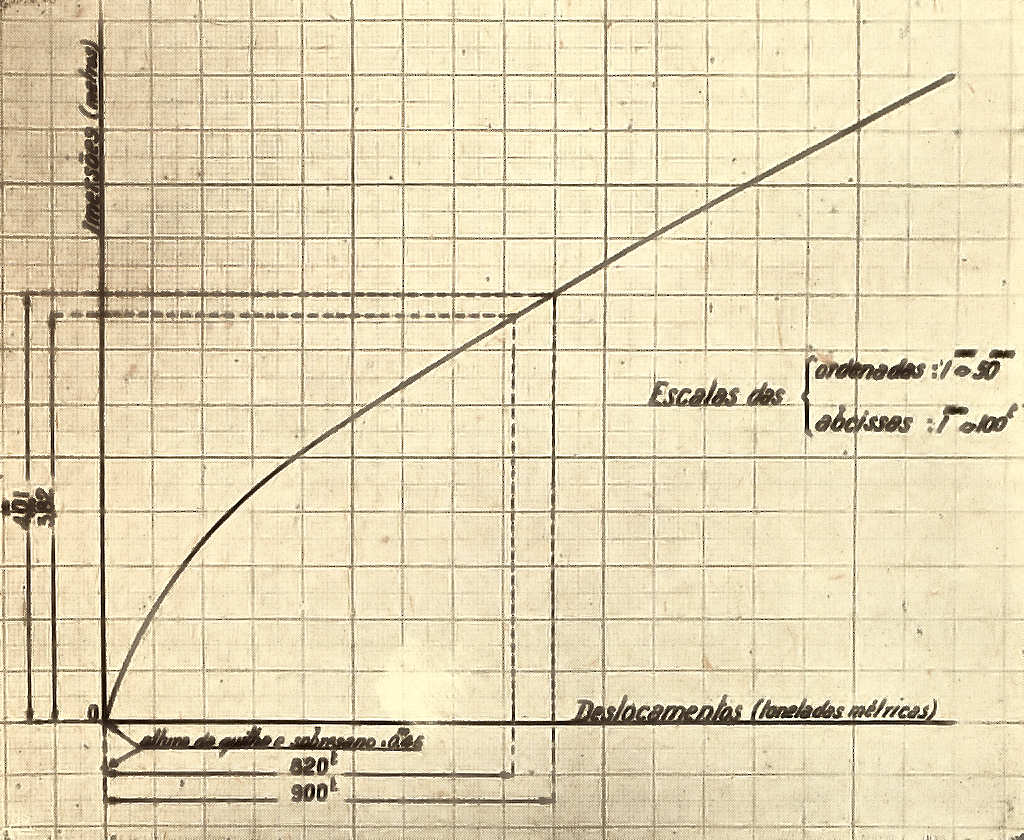 Imersões (metros)
Escalas das
ordenadas : 1ᵐᵐ = 50ᵐᵐ
abcissas : 1ᵐᵐ = 100ᵗ
4,01
3,82
0
Deslocamentos (toneladas métricas)
altura da quilha e sobresano :
820ᵗ
900ᵗ